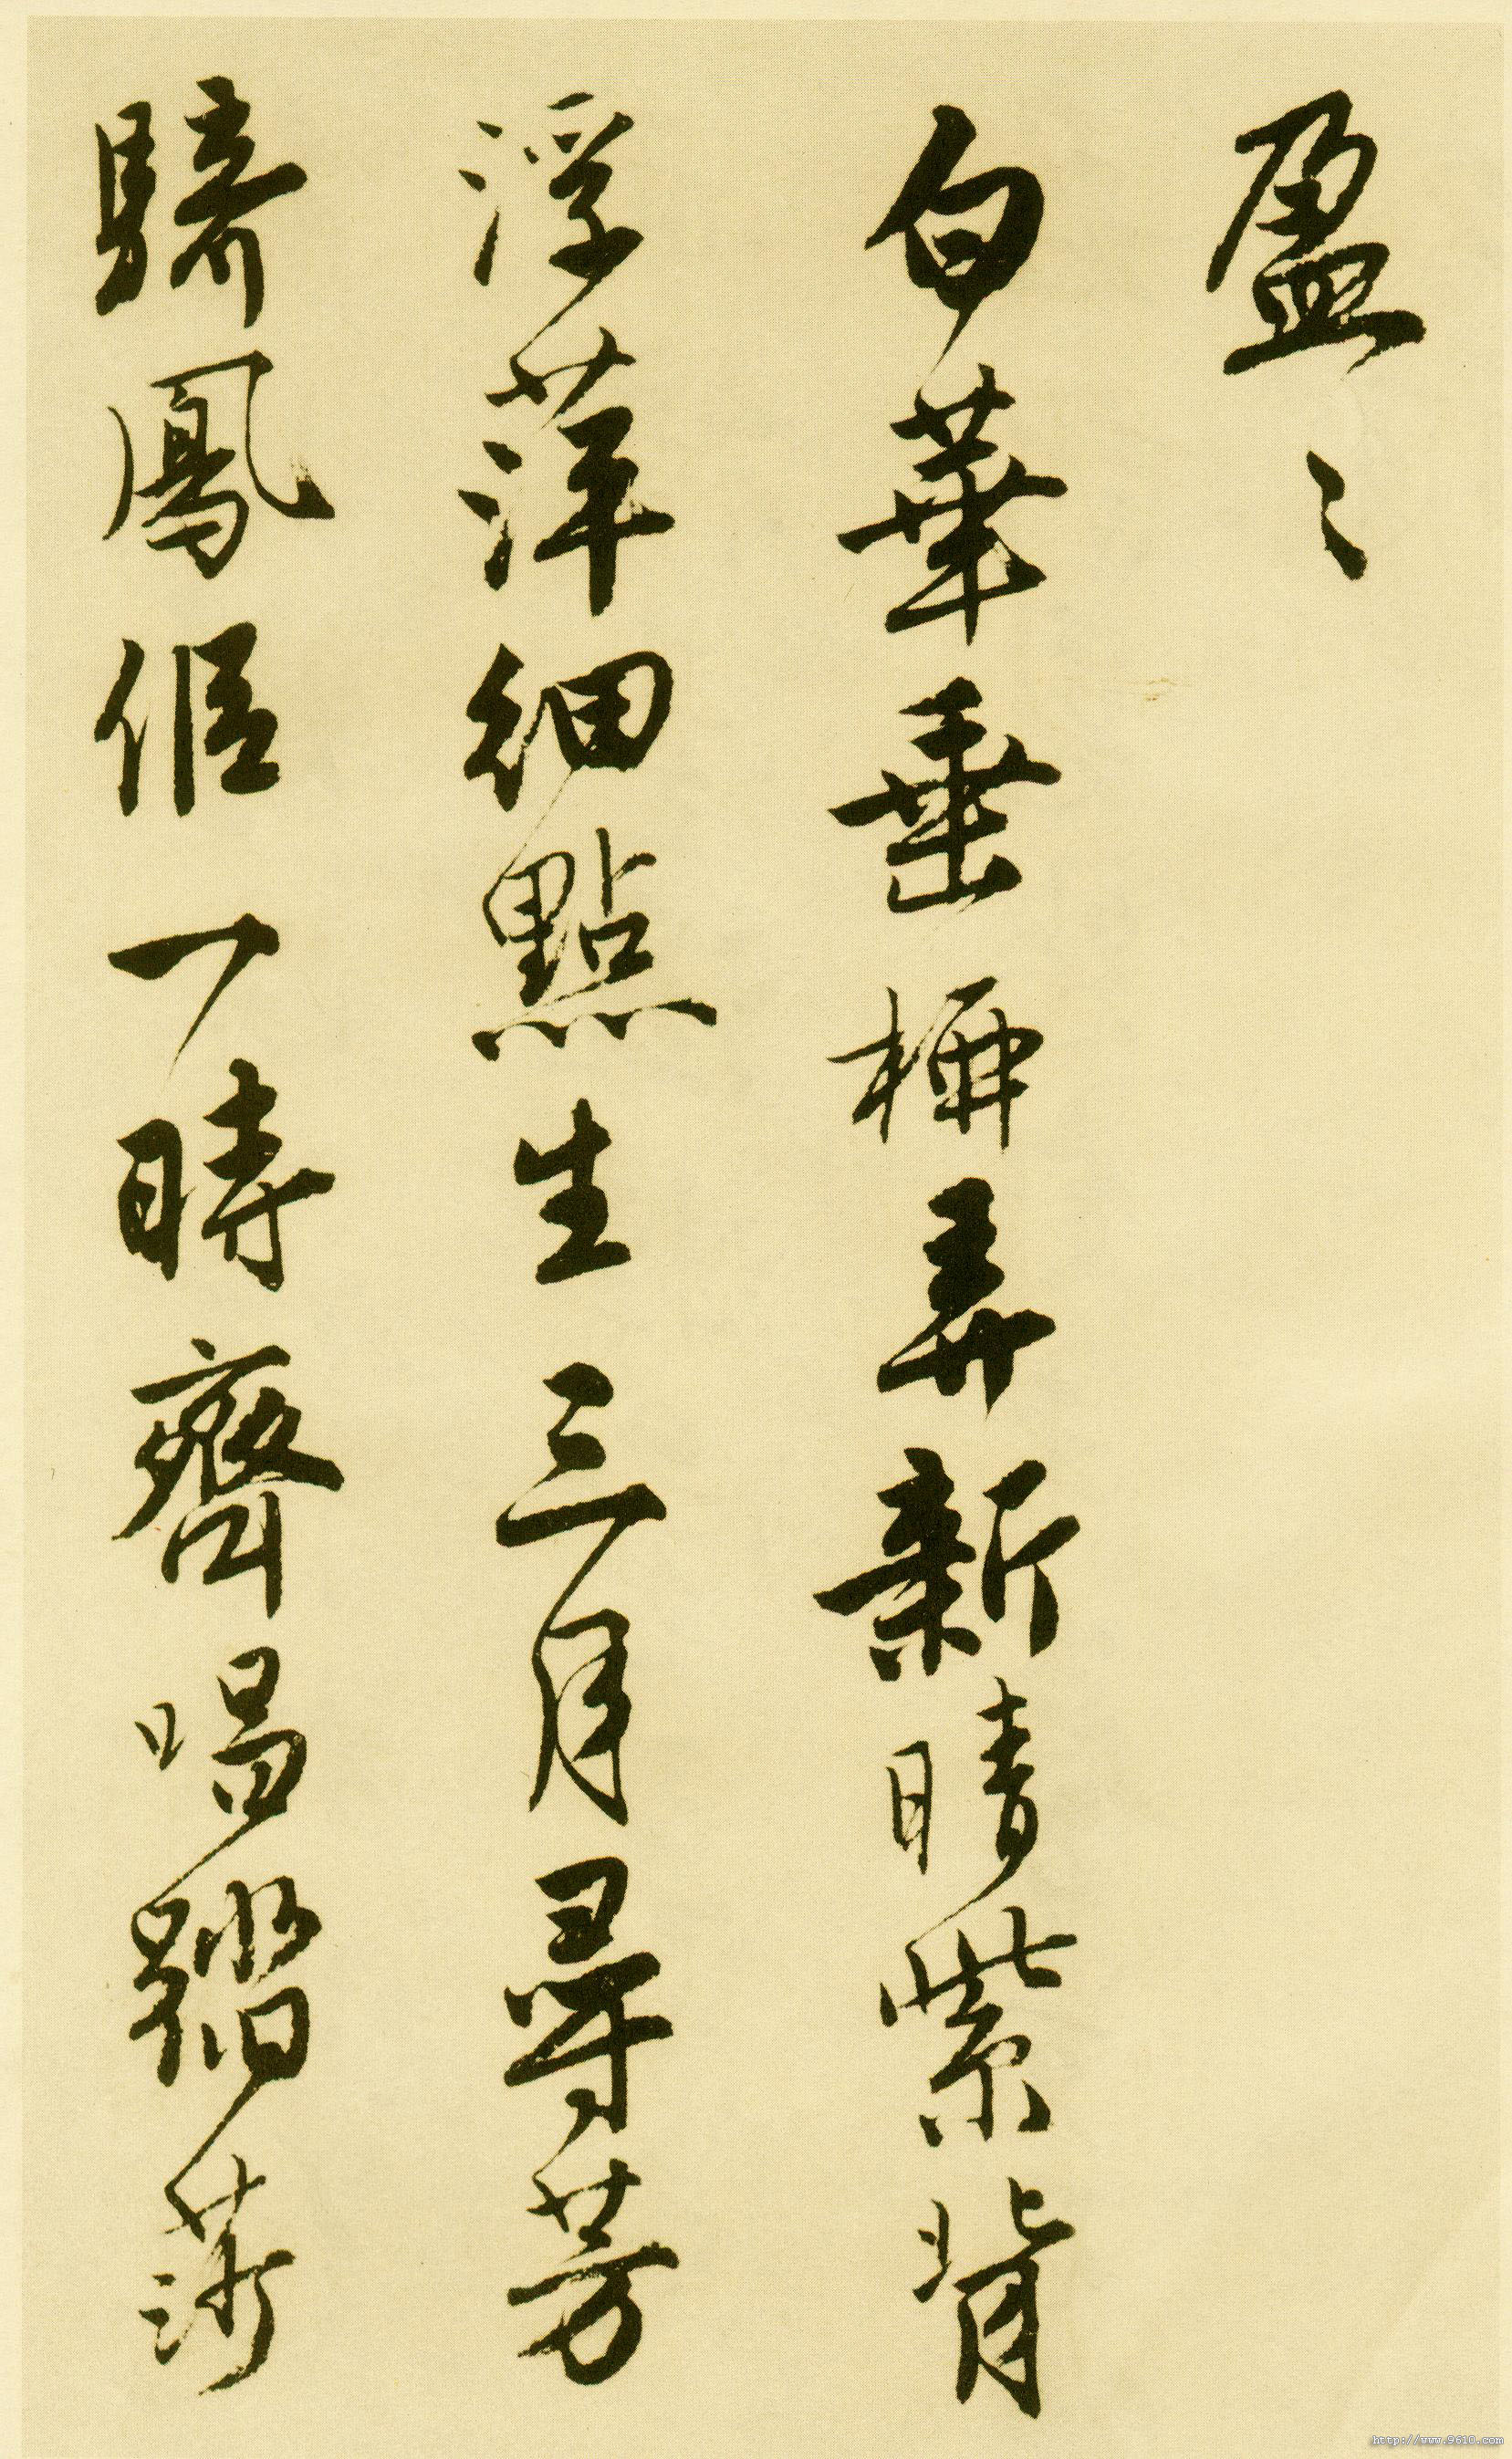 盈〻
白華垂柳弄新晴紫背
浮萍細點生三月尋芳
騎鳳侶一時齊唱踏莎
http://www.9610.com